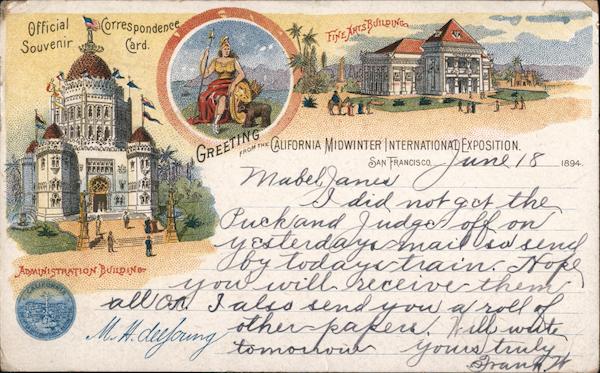 Official Correspondence
Souvenir Card.
FINE ARTS BUILDING
GREETING FROM THE CALIFORNIA MIDWINTER INTERNATIONAL EXPOSITION.
SAN FRANCISCO, June 18 1894.
Mabel Janes
I did not get the
Puck and Judge off on
yesterdays mail so send
by todays train. Hope
you will receive them
all OK I also send you a roll of
other papers. Will write
tomorrow Yours truly
Frank W
ADMINISTRATION BUILDING
CALIFORNIA
M. H. de Young